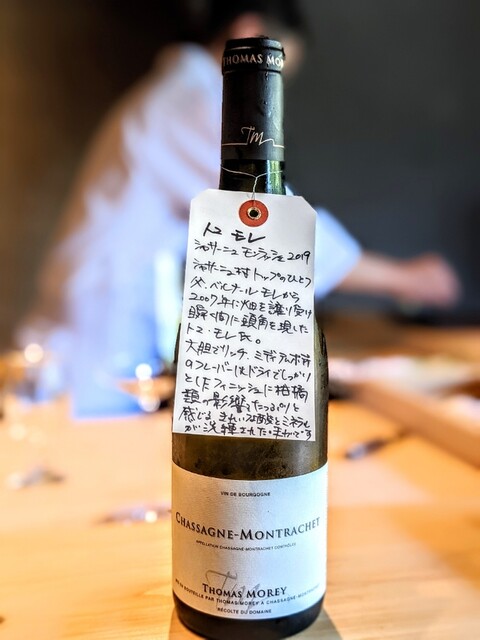 THOMAS MOREY
TM
トマ モレ
シャサーニュ モンラッシェ 2019
シャサーニュ村トップのひとつ
父、ベルナール モレから
2007年に畑を譲り受け
瞬く間に頭角を現した
トマ・モレ氏。
大胆でリッチ、ミディアムボディ
のフレーバーはドライでしっかり
としたフィニッシュに柑橘
類の影響をたっぷりと
感じる。きれいな酸とミネラル
が洗練された味わいです
VIN DE BOURGOGNE
CHASSAGNE-MONTRACHET
APPELLATION CHASSAGNE-MONTRACHET CONTRÔLÉE
Tm
THOMAS MOREY
MIS EN BOUTEILLE PAR THOMAS MOREY À CHASSAGNE-MONTRACHET
RÉCOLTE DU DOMAINE